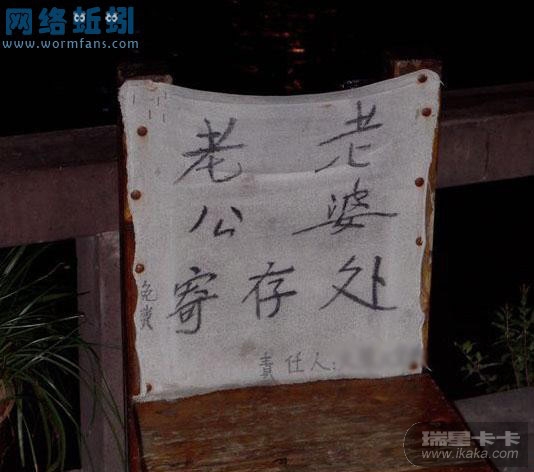 网络蚯蚓
www.wormfans.com
老 老
公 婆
免费
寄存处
责任人:
瑞星卡卡
www.ikaka.com